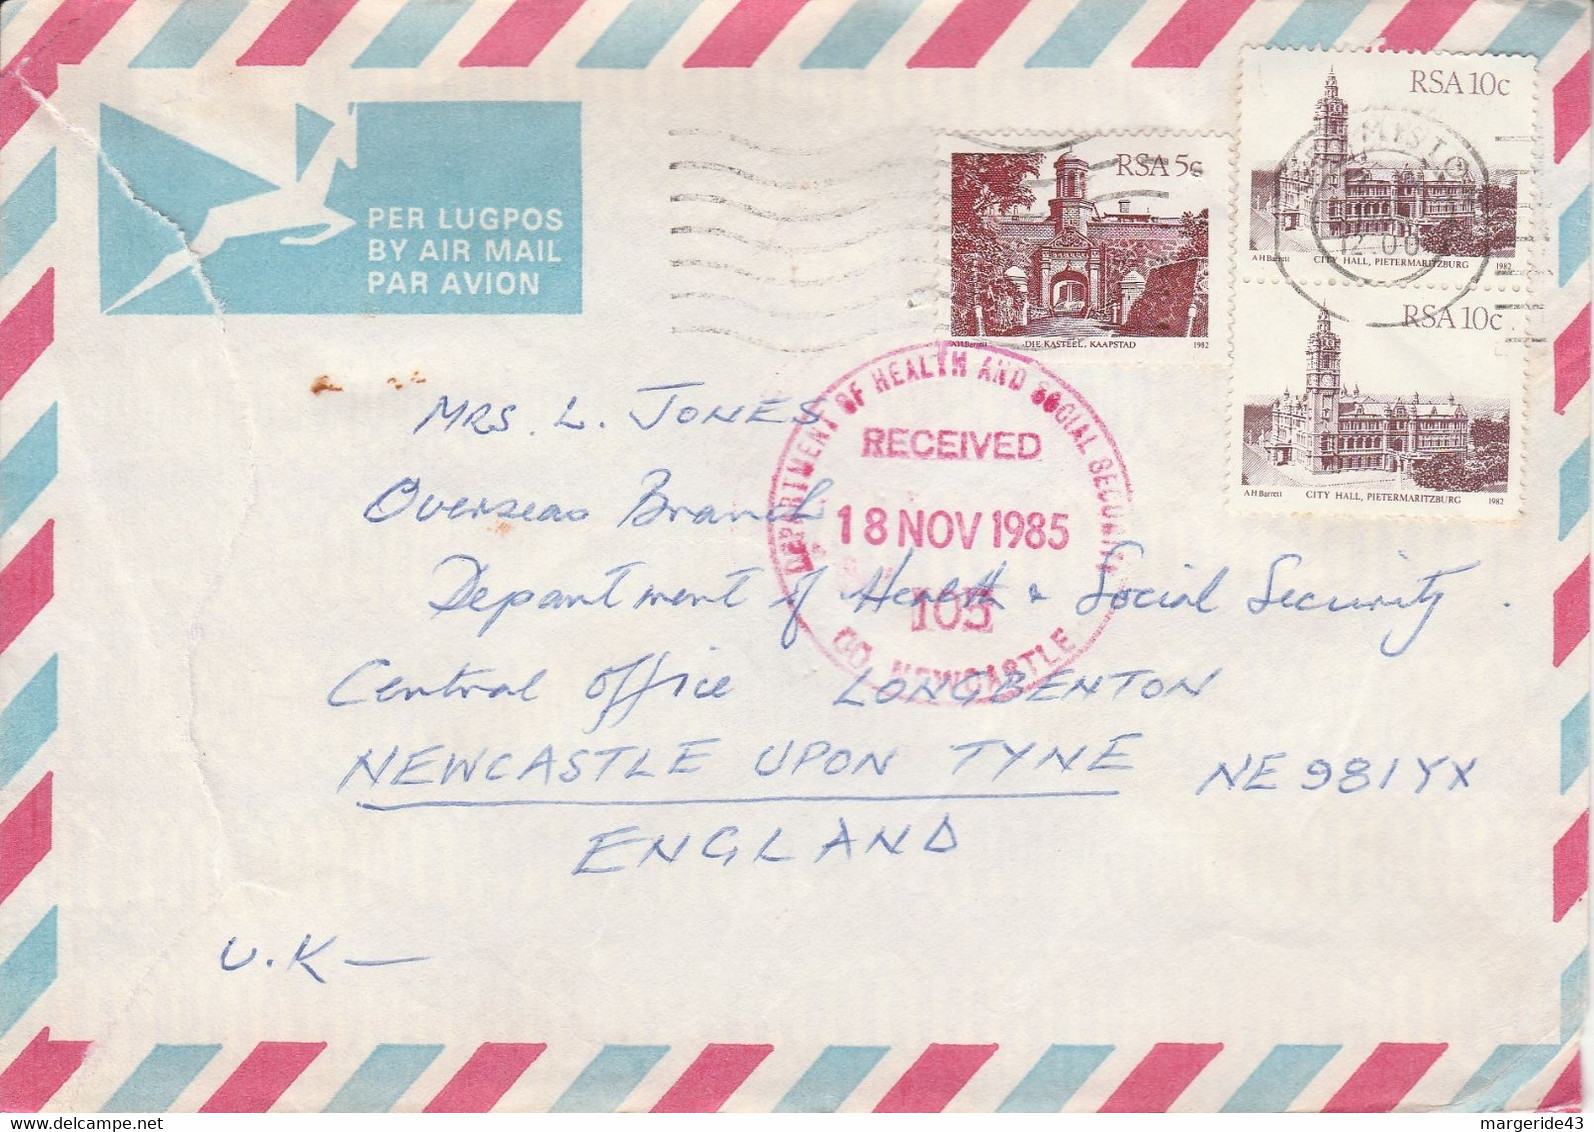 PER LUGPOS
BY AIR MAIL
PAR AVION
RSA 5c
AH Barrett DIE KASTEEL, KAAPSTAD 1982
RSA 10c
12.00
AH Barrett CITY HALL, PIETERMARITZBURG 1982
RSA 10c
AH Barrett CITY HALL, PIETERMARITZBURG 1982
DEPARTMENT OF HEALTH AND SOCIAL SECURITY
RECEIVED
18 NOV 1985
105
CO. NEWCASTLE
MRS. L. JONES
Overseas Branch
Department of Health & Social Security.
Central Office LONGBENTON
NEWCASTLE UPON TYNE NE981YX
ENGLAND
U.K—
margeride43